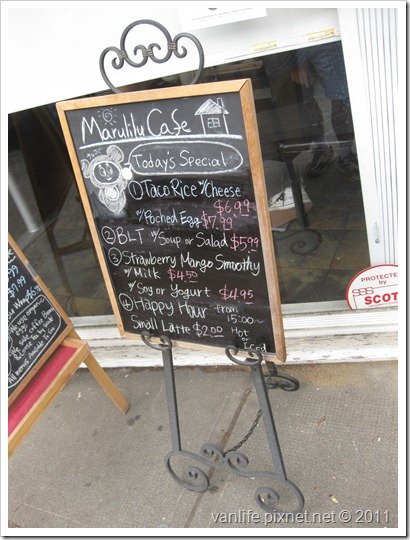 Marulilu Cafe
Todays Special
① Taco Rice w/Cheese
$6.99
w/Poched Egg $7.99
② BLT w/Soup or Salad $5.99
③ Strawberry Mango Smoothy
w/Milk $4.50
w/Soy or Yogurt $4.95
④ Happy Hour from 15:00~
Small Latte $2.00 Hot or Iced
PROTECTED BY
SCOT
vanlife.pixnet.net © 2011